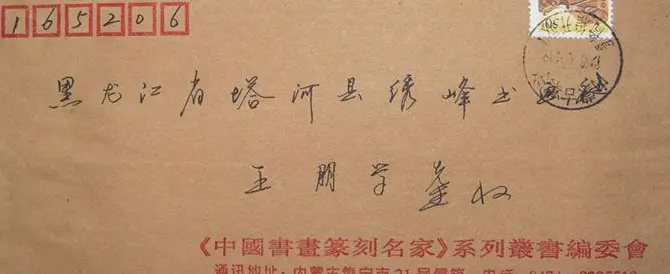 165206
黑龙江省塔河县绣峰书画院
王朋学 收
《中國書畫篆刻名家》系列叢書編委會
通訊地址：内蒙古集宁市21号信箱 电话